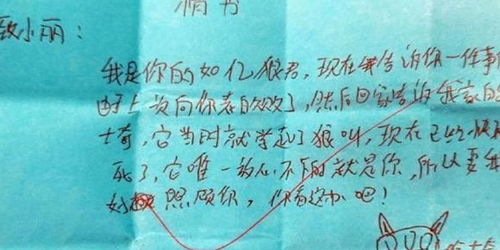 情书
致小丽：
我是你的如亿狼君，现在我告诉你一件事
由于上次向你表白败了，然后回家告诉我家的
士奇，它当时就学起了狼叫，现在已经
死了，它唯一放心不下的就是你，所以要我
好 照顾你，你看这办吧！